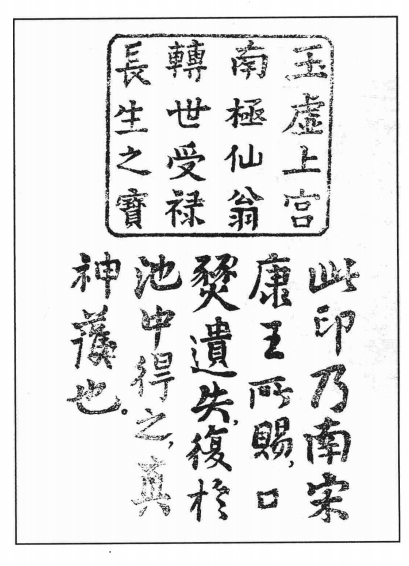 玉虛上宮
南極仙翁
轉世受禄
長生之寶
此印乃南宋
康王所賜,口
燹遺失,復於
池中得之,真
神護也。